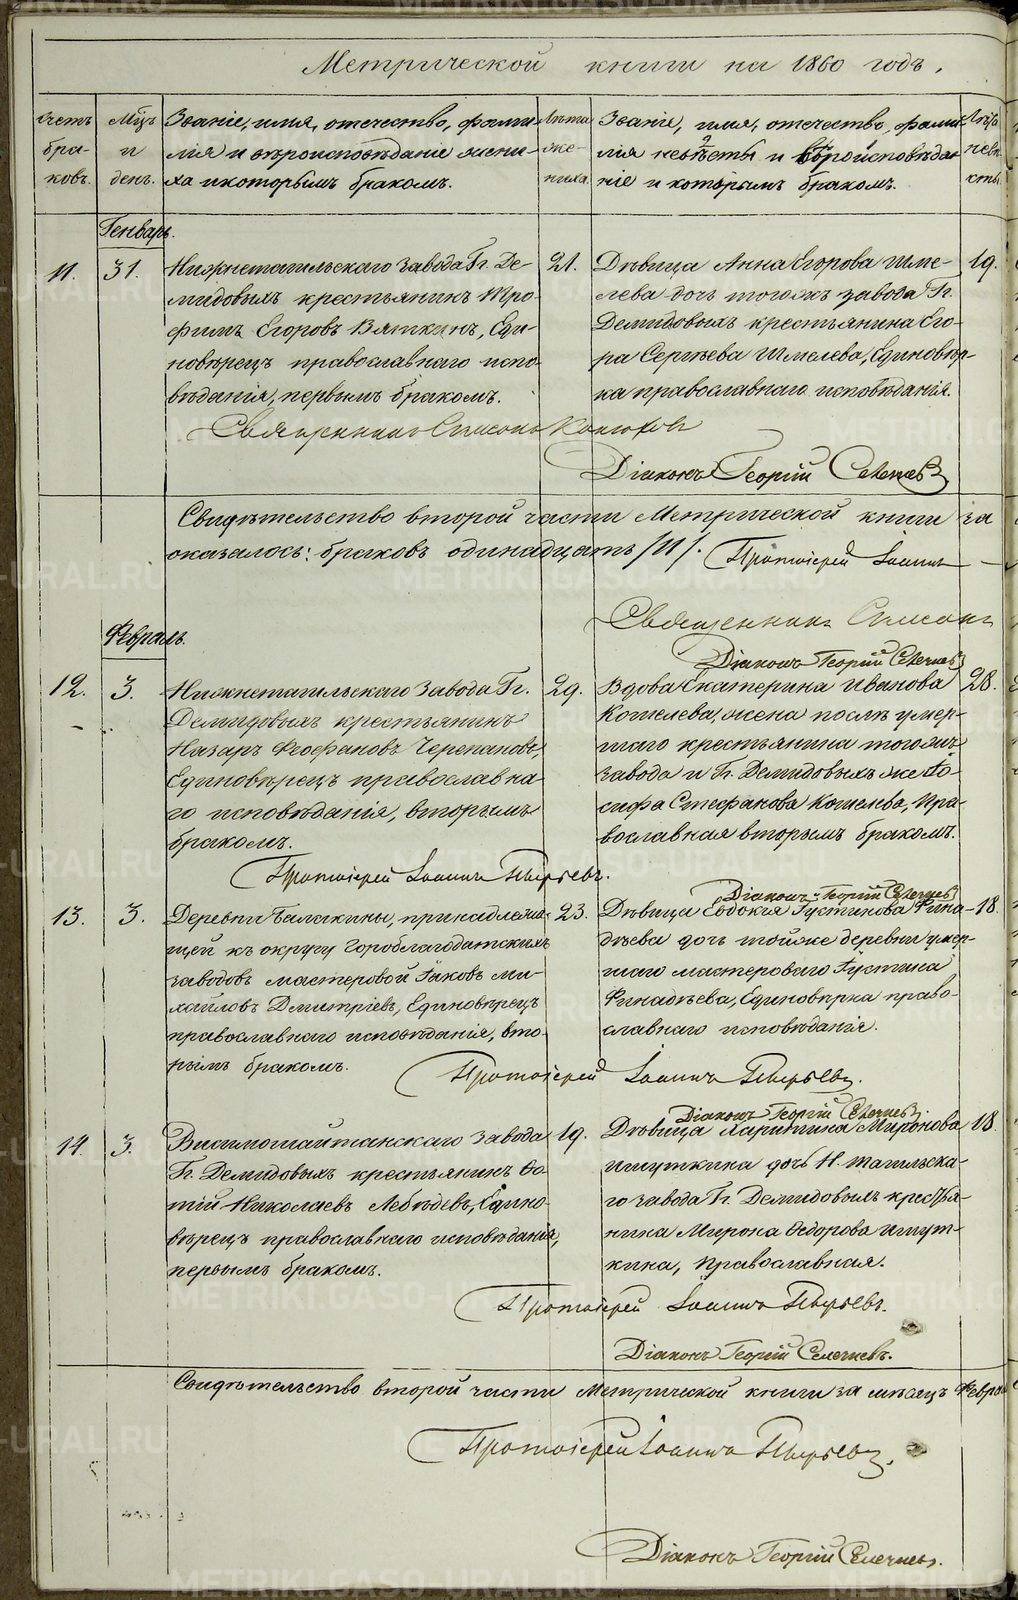 Метрической книги на 1860 годъ.
Счетъ браковъ.
Мѣц. и день.
Званіе, имя, отчество, фамилія и вѣроисповѣданіе жениха и которымъ бракомъ.
Лѣта жениха.
Званіе, имя, отчество, фамилія невѣсты и вѣроисповѣданіе и которымъ бракомъ.
Генварь.
11.
31.
Нижнетагильскаго завода Гг. Де-
мидовыхъ крестьянинъ Тро-
фимъ Егоровъ Вяткинъ, Еди-
новѣрецъ православнаго испо-
вѣданія, первымъ бракомъ.
21.
Дѣвица Анна Егорова Шме-
лева дочь тогожъ завода Гг.
Демидовыхъ крестьянина Его-
ра Сергѣева Шмелева, Единовѣр-
ка православнаго исповѣданія.
19.
Священникъ Симеонъ
Діаконъ Георгій Селечневъ
Свидѣтельство второй части Метрической книги за
оказалось: браковъ одинадцать /11/.
Протоіерей Іоаннъ
Священникъ Симеонъ
Діаконъ Георгій Селечневъ
Февраль.
12.
3.
Нижнетагильскаго завода Гг.
Демидовыхъ крестьянинъ
Назаръ Феофановъ Черепановъ,
Единовѣрецъ православна-
го исповѣданія, вторымъ
бракомъ.
29.
Вдова Екатерина Иванова
Кошелева, жена послѣ умер-
шаго крестьянина тогожъ
завода и Гг. Демидовыхъ же Іо-
сифа Стефанова Кошелева, Пра-
вославная вторымъ бракомъ.
28.
Протоіерей Іоаннъ Пырьевъ.
Діаконъ Георгій Селечневъ
13.
3.
Деревни Балакины, принадлежа-
щей къ округу Гороблагодатскихъ
заводовъ мастеровой Іаковъ Ми-
хайловъ Дмитріевъ, Единовѣрецъ
православнаго исповѣданія, вто-
рымъ бракомъ.
23.
Дѣвица Евдокія Густинова Фина-
дѣева дочь тойже деревни умер-
шаго мастероваго Густина
Финадѣева, Единовѣрка право-
славнаго исповѣданія.
18.
Протоіерей Іоаннъ Пырьевъ.
Діаконъ Георгій Селечневъ.
14.
3.
Висимошайтанскаго завода
Гг. Демидовыхъ крестьянинъ Фо-
тій Николаевъ Лебедевъ, Едино-
вѣрецъ православнаго исповѣданія,
первымъ бракомъ.
19.
Дѣвица Харитина Миронова
Ишуткина дочь Н. Тагильска-
го завода Гг. Демидовыхъ крестья-
нина Мирона Федорова Ишут-
кина, Православная.
18.
Протоіерей Іоаннъ Пырьевъ.
Діаконъ Георгій Селечневъ.
Свидѣтельство второй части Метрической книги за мѣсяцъ Февра
Протоіерей Іоаннъ Пырьевъ.
Діаконъ Георгій Селечневъ.
METRIKI.GASO-URAL.RU